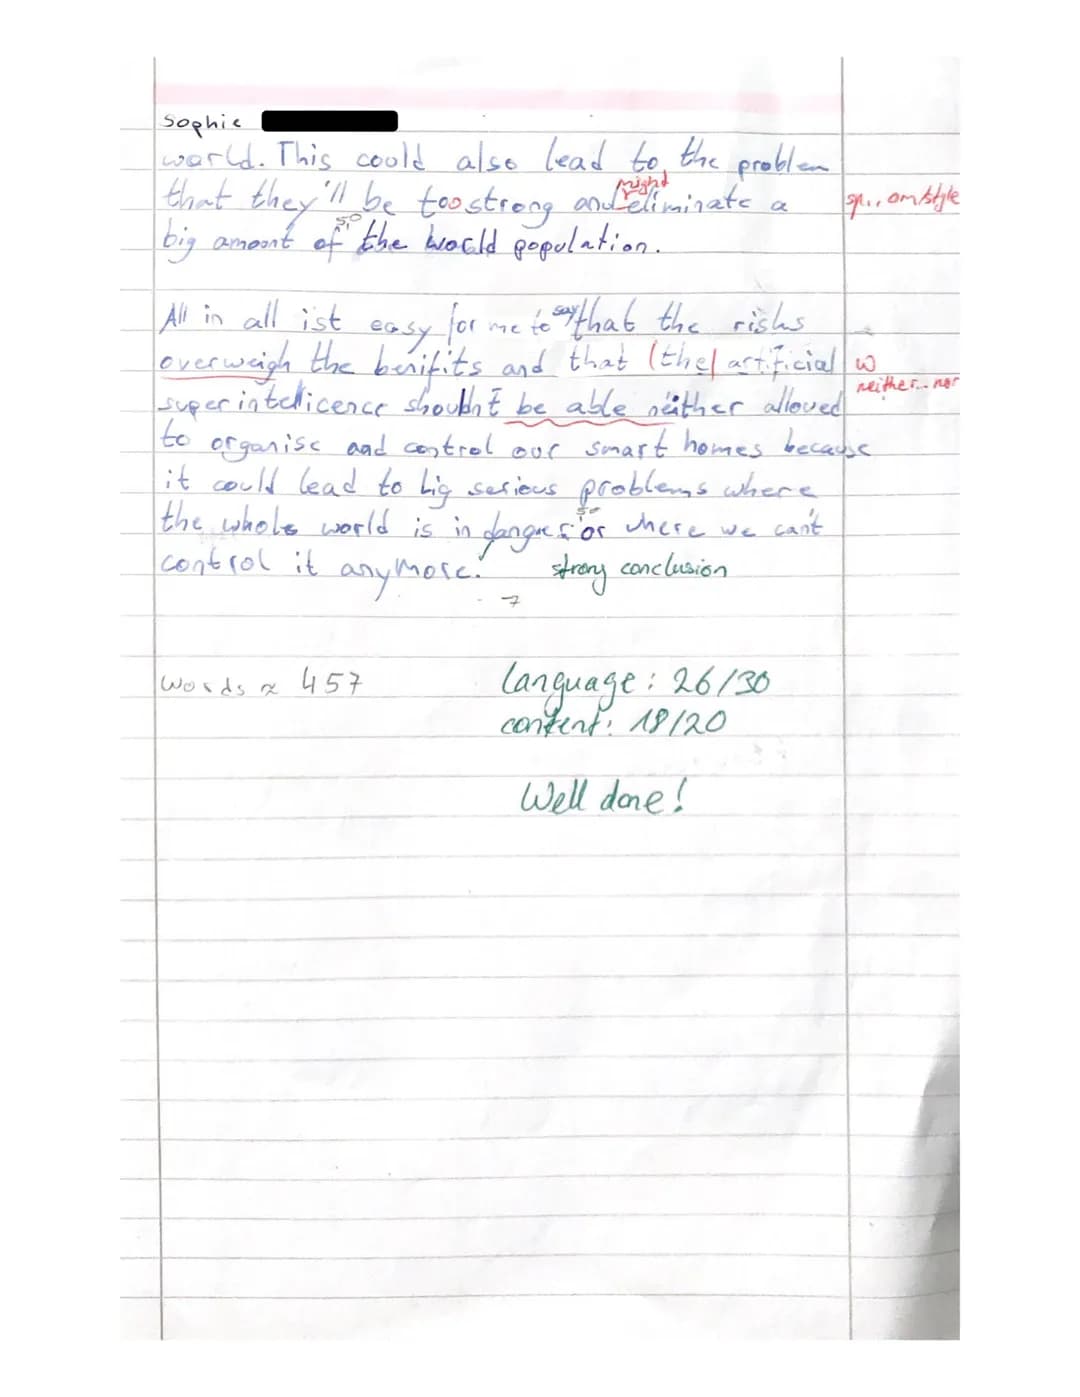 Sophie
world. This could also lead to the problem
that they'll be too strong and might eliminate a sp., om/style
big amount of 50 the world population.
All in all ist easy for me to say that the risks
overweigh the benifits and that (the) artificial w
neither... nor
superintellicence shouldn't be able neither allowed
to organise and control our smart homes because
it could lead to big serious problems where
the whole world is in danguer or where we can't
control it anymore. strong conclusion
7
Words ≈ 457 Language: 26/30
content: 18/20
Well done!